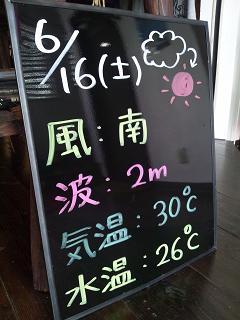 6/16(土)
風:南
波:2m
気温:30℃
水温:26℃